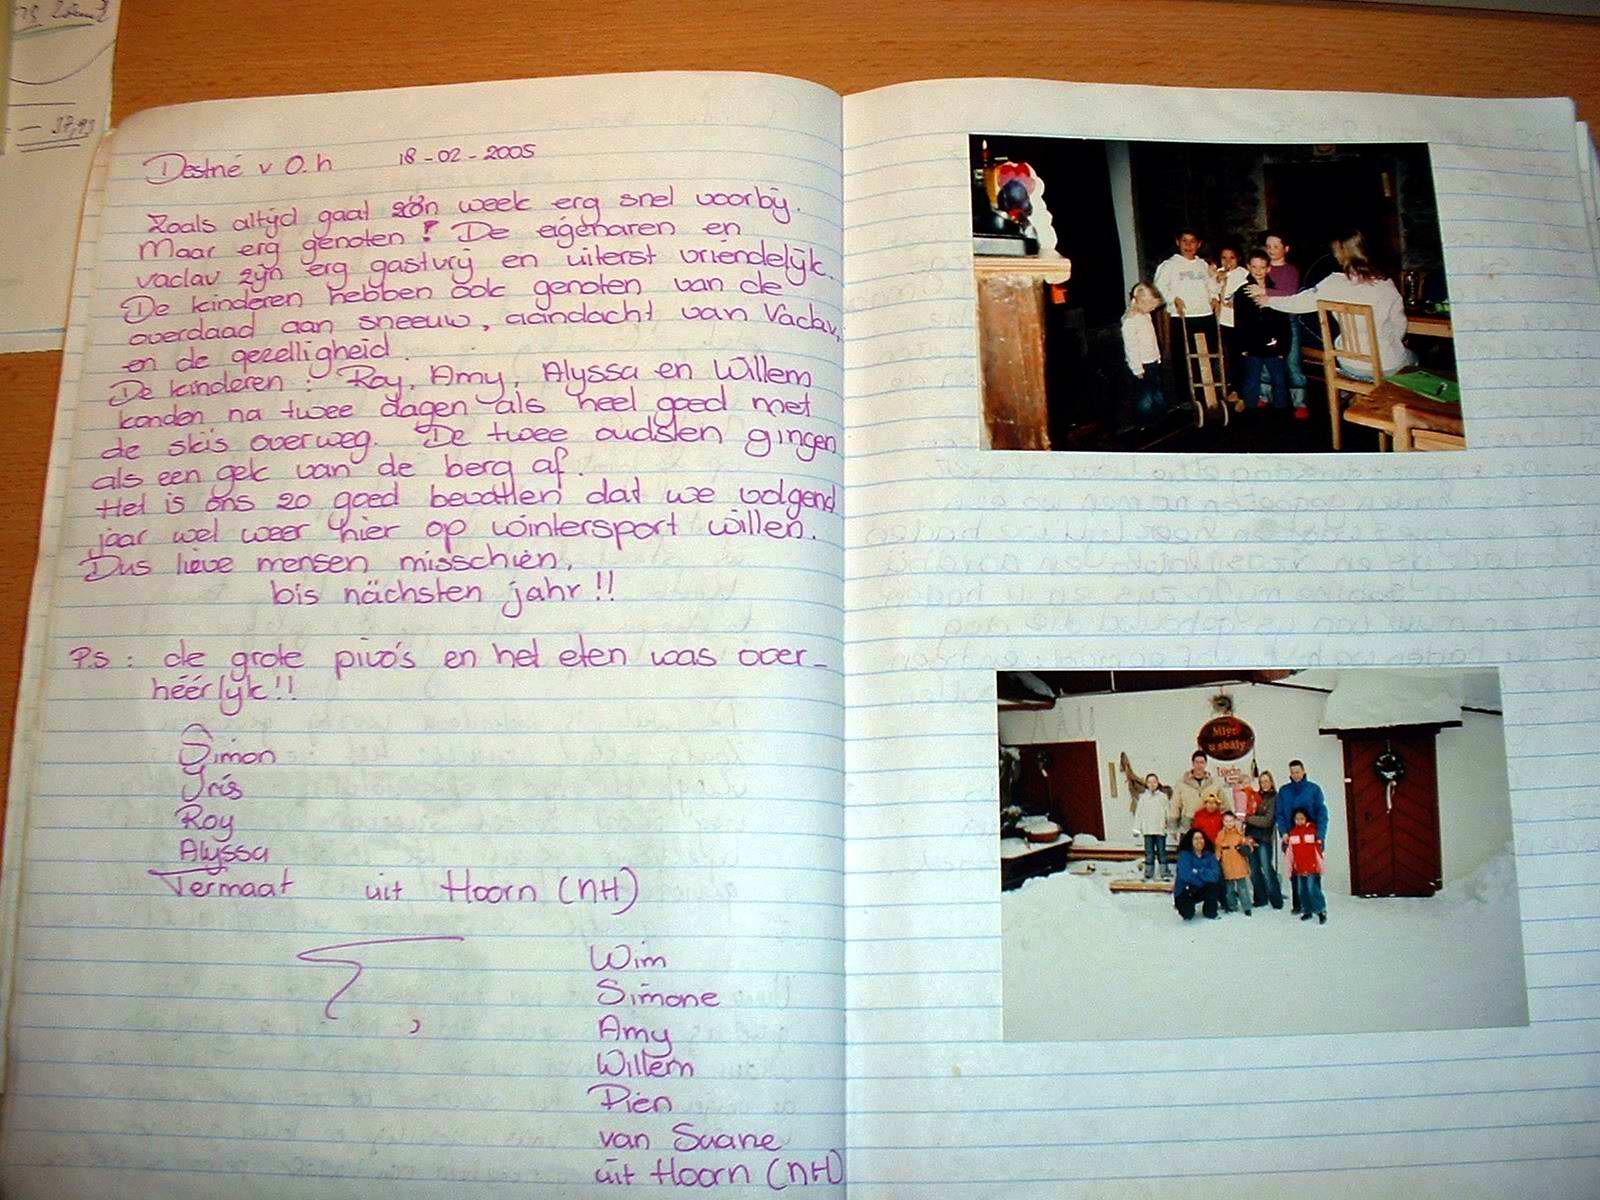 37,93
Destné v O.h 18-02-2005
Zoals altijd gaat zo'n week erg snel voorbij.
Maar erg genoten! De eigenaren en
vaclav zijn erg gastvrij en uiterst vriendelijk.
De kinderen hebben ook genoten van de
overdaad aan sneeuw, aandacht van Vaclav,
en de gezelligheid.
De kinderen: Roy, Amy, Alyssa en Willem
konden na twee dagen als heel goed met
de skis overweg. De twee oudsten gingen
als een gek van de berg af.
Het is ons zo goed bevallen dat we volgend
jaar wel weer hier op wintersport willen.
Dus lieve mensen misschien,
bis nächsten jahr!!
P.S: de grote pivo's en het eten was over-
héérlijk!!
Simon
Iris
Roy
Alyssa
Termaat uit Hoorn (NH)
Wim
Simone
Amy
Willem
Pien
van Suane
uit Hoorn (NH)
Mlýn
u skály